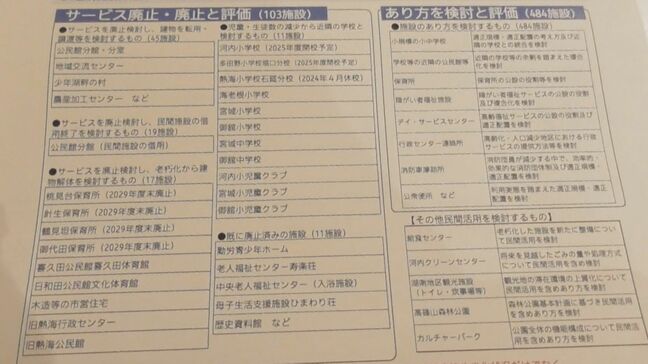 サービス廃止・廃止と評価（103施設）
●サービスを廃止検討し、建物を転用・
譲渡等を検討するもの（45施設）
公民館分館・分室
地域交流センター
少年湖畔の村
農産加工センター　など
●サービスを廃止検討し、民間施設の借
用終了を検討するもの（19施設）
公民館分館（民間施設の借用）
●サービスを廃止検討し、老朽化から建
物解体を検討するもの（17施設）
桃見台保育所（2029年度末廃止）
針生保育所（2029年度末廃止）
鶴見坦保育所（2029年度末廃止）
御代田保育所（2029年度末廃止）
喜久田公民館喜久田体育館
日和田公民館文化体育館
木造等の市営住宅
旧熱海行政センター
旧熱海公民館
●児童・生徒数の減少から近隣の学校と
検討するもの（11施設）
河内小学校（2025年度閉校予定）
多田野小学校堀口分校（2025年度閉校予定）
熱海小学校石筵分校（2024年４月休校）
海老根小学校
宮城小学校
御舘小学校
宮城中学校
御舘中学校
河内小児童クラブ
宮城小児童クラブ
御舘小児童クラブ
●既に廃止済みの施設（11施設）
勤労青少年ホーム
老人福祉センター寿楽荘
中央老人福祉センター（入浴施設）
母子生活支援施設ひまわり荘
歴史資料館　など
あり方を検討と評価（484施設）
●施設のあり方を検討するもの（484施設）
小規模の小中学校
適正規模・適正配置の考え方及び近
隣の学校との統合を検討
学校等の近隣の公民館等
近隣の学校等の余剰を踏まえた複合
化を検討
保育所
保育所の公設の役割等を検討
障がい者福祉施設
障がい者福祉サービスの公設の役割
及び複合化を検討
デイ・サービスセンター
高齢福祉サービスの公設の役割及び
適正配置を検討
行政センター連絡所
高齢化・人口減少地区における行政
サービスの提供方法等を検討
消防車庫詰所
消防団員が減少する中で、効率的・
効果的な消防団体制及び適正規模・
適正配置を検討
公衆便所　など
利用実態を踏まえた適正規模・適正
配置を検討
【その他民間活用を検討するもの】
給食センター
老朽化した施設を新たに整備につい
て民間活用を検討
河内クリーンセンター
将来を見越したごみの量や処理方式
について民間活用を含め検討
湖南地区観光施設
（トイレ・炊事場等）
観光地の滞在環境の上質化について
民間活用を含めあり方を検討
高篠山森林公園
森林公園基本計画に基づき民間活用
を含めあり方を検討
カルチャーパーク
公園全体の機能構成について民間活
用を含めあり方を検討